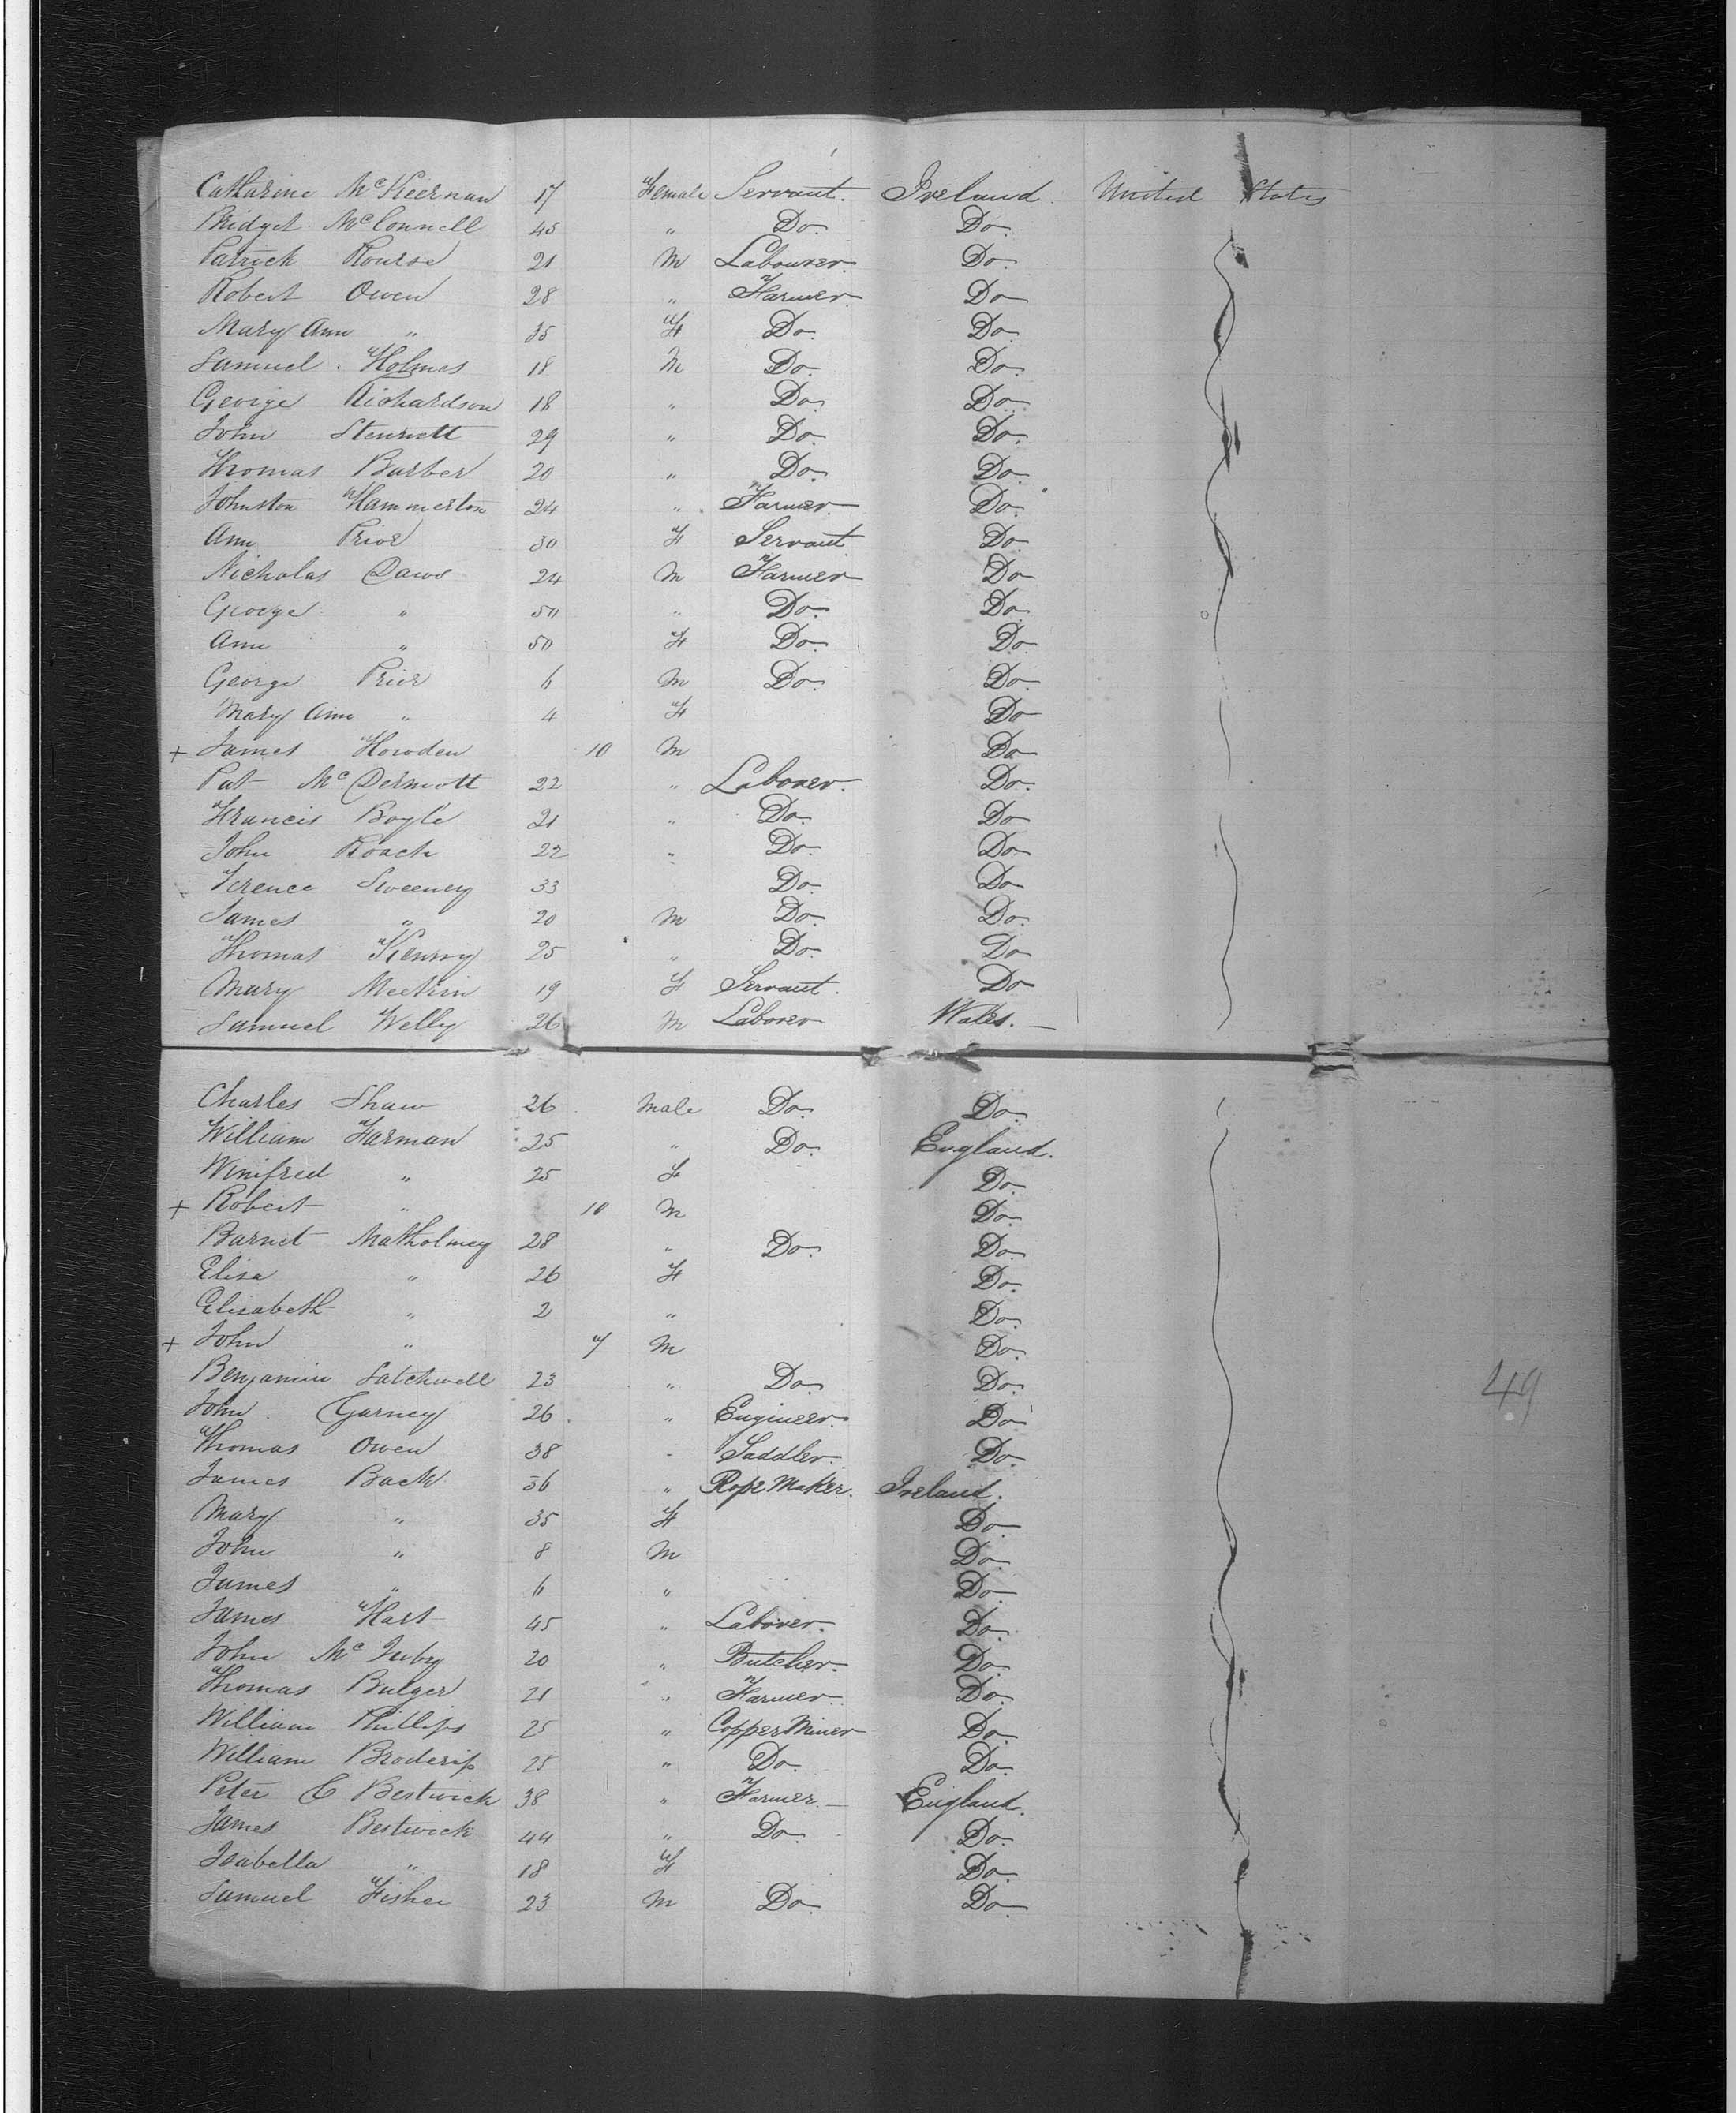 Catharine McKiernan 17 Female Servant. Ireland. United States
Bridget McConnell 45 " Do. Do.
Patrick Rourse 21 M Labourer. Do.
Robert Owen 28 " Farmer Do
Mary Ann " 35 F Do. Do.
Samuel Holmes 18 M Do. Do.
George Richardson 18 " Do. Do.
John Stennett 29 " Do. Do.
Thomas Barber 20 " Do. Do.
Johnston Hammerton 24 " Farmer Do.
Ann Prior 30 F Servant Do
Nicholas Daws 24 M Farmer Do
George " 50 " Do. Do
Ann " 50 F Do. Do
George Prior 6 M Do. Do.
Mary Ann " 4 F Do
+ James Howden 10 M Do
Pat McDermott 22 " Laborer. Do.
Francis Boyle 21 " Do. Do
John Roach 22 " Do. Do
Terence Sweeney 33 Do. Do
James " 20 M Do. Do.
Thomas Kenny 25 " Do. Do
Mary Meekin 19 F Servant. Do
Samuel Welly 26 M Laborer Wales.
Charles Shaw 26 Male Do. Do.
William Farman 25 " Do. England.
Winifred " 25 F Do.
+ Robert " 10 M Do.
Barnet 28 " Do. Do.
Elisa " 26 F Do.
Elisabeth " 2 " Do.
+ John " 7 M Do.
Benjamin Satchwell 23 " Do. Do.
John Garney 26 " Engineer. Do
Thomas Owen 38 - Saddler. Do.
James Back 36 " Rope Maker. Ireland.
Mary " 35 F Do.
John " 8 M Do.
James " 6 " Do.
James Hart 45 " Laborer. Do.
John 20 " Butcher. Do.
Thomas Bulger 21 " Farmer Do.
William Phillips 25 " Copper Miner Do.
William Broderip 25 " Do. Do.
Peter C Bestwick 38 " Farmer. England.
James Bestwick 44 " Do. Do.
Isabella " 18 F Do.
Samuel Fisher 23 M Do. Do
49